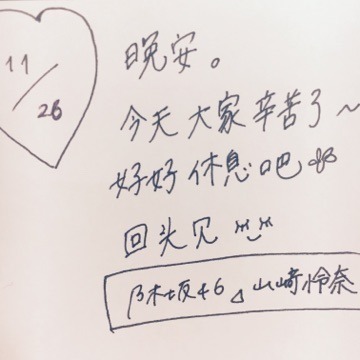 11/26
晚安。
今天大家辛苦了～
好好休息吧
回头见
乃木坂46 山崎怜奈